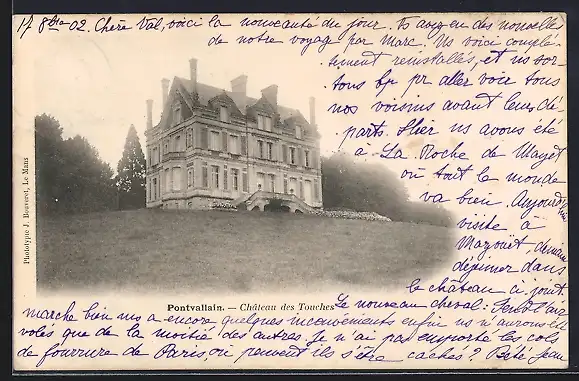 17 8bre 02. Chère Val, voici la nouveauté du jour. Ts avez eu des nouvelles
de notre voyage par Marc. Ns voici complè-
tement reinstallés, et ns sor-
tons bp pr aller voir tous
nos voisins avant leur dé-
part. Hier ns avons été
à La Roche de Mayet
où tout le monde
va bien. Aujourd'hui
visite à
demain
déjeuner dans
le château ci joint
Le nouveau cheval:
marche bien ns a encore quelques inconvénients enfin ns n'aurons été
volés que de la moitié des autres. Je n'ai pas emporté les cols
de fourrure de Paris, où peuvent ils s'être cachés? Bébé Jean
Pontvallain. — Château des Touches
Phototypie J. Bouveret, Le Mans